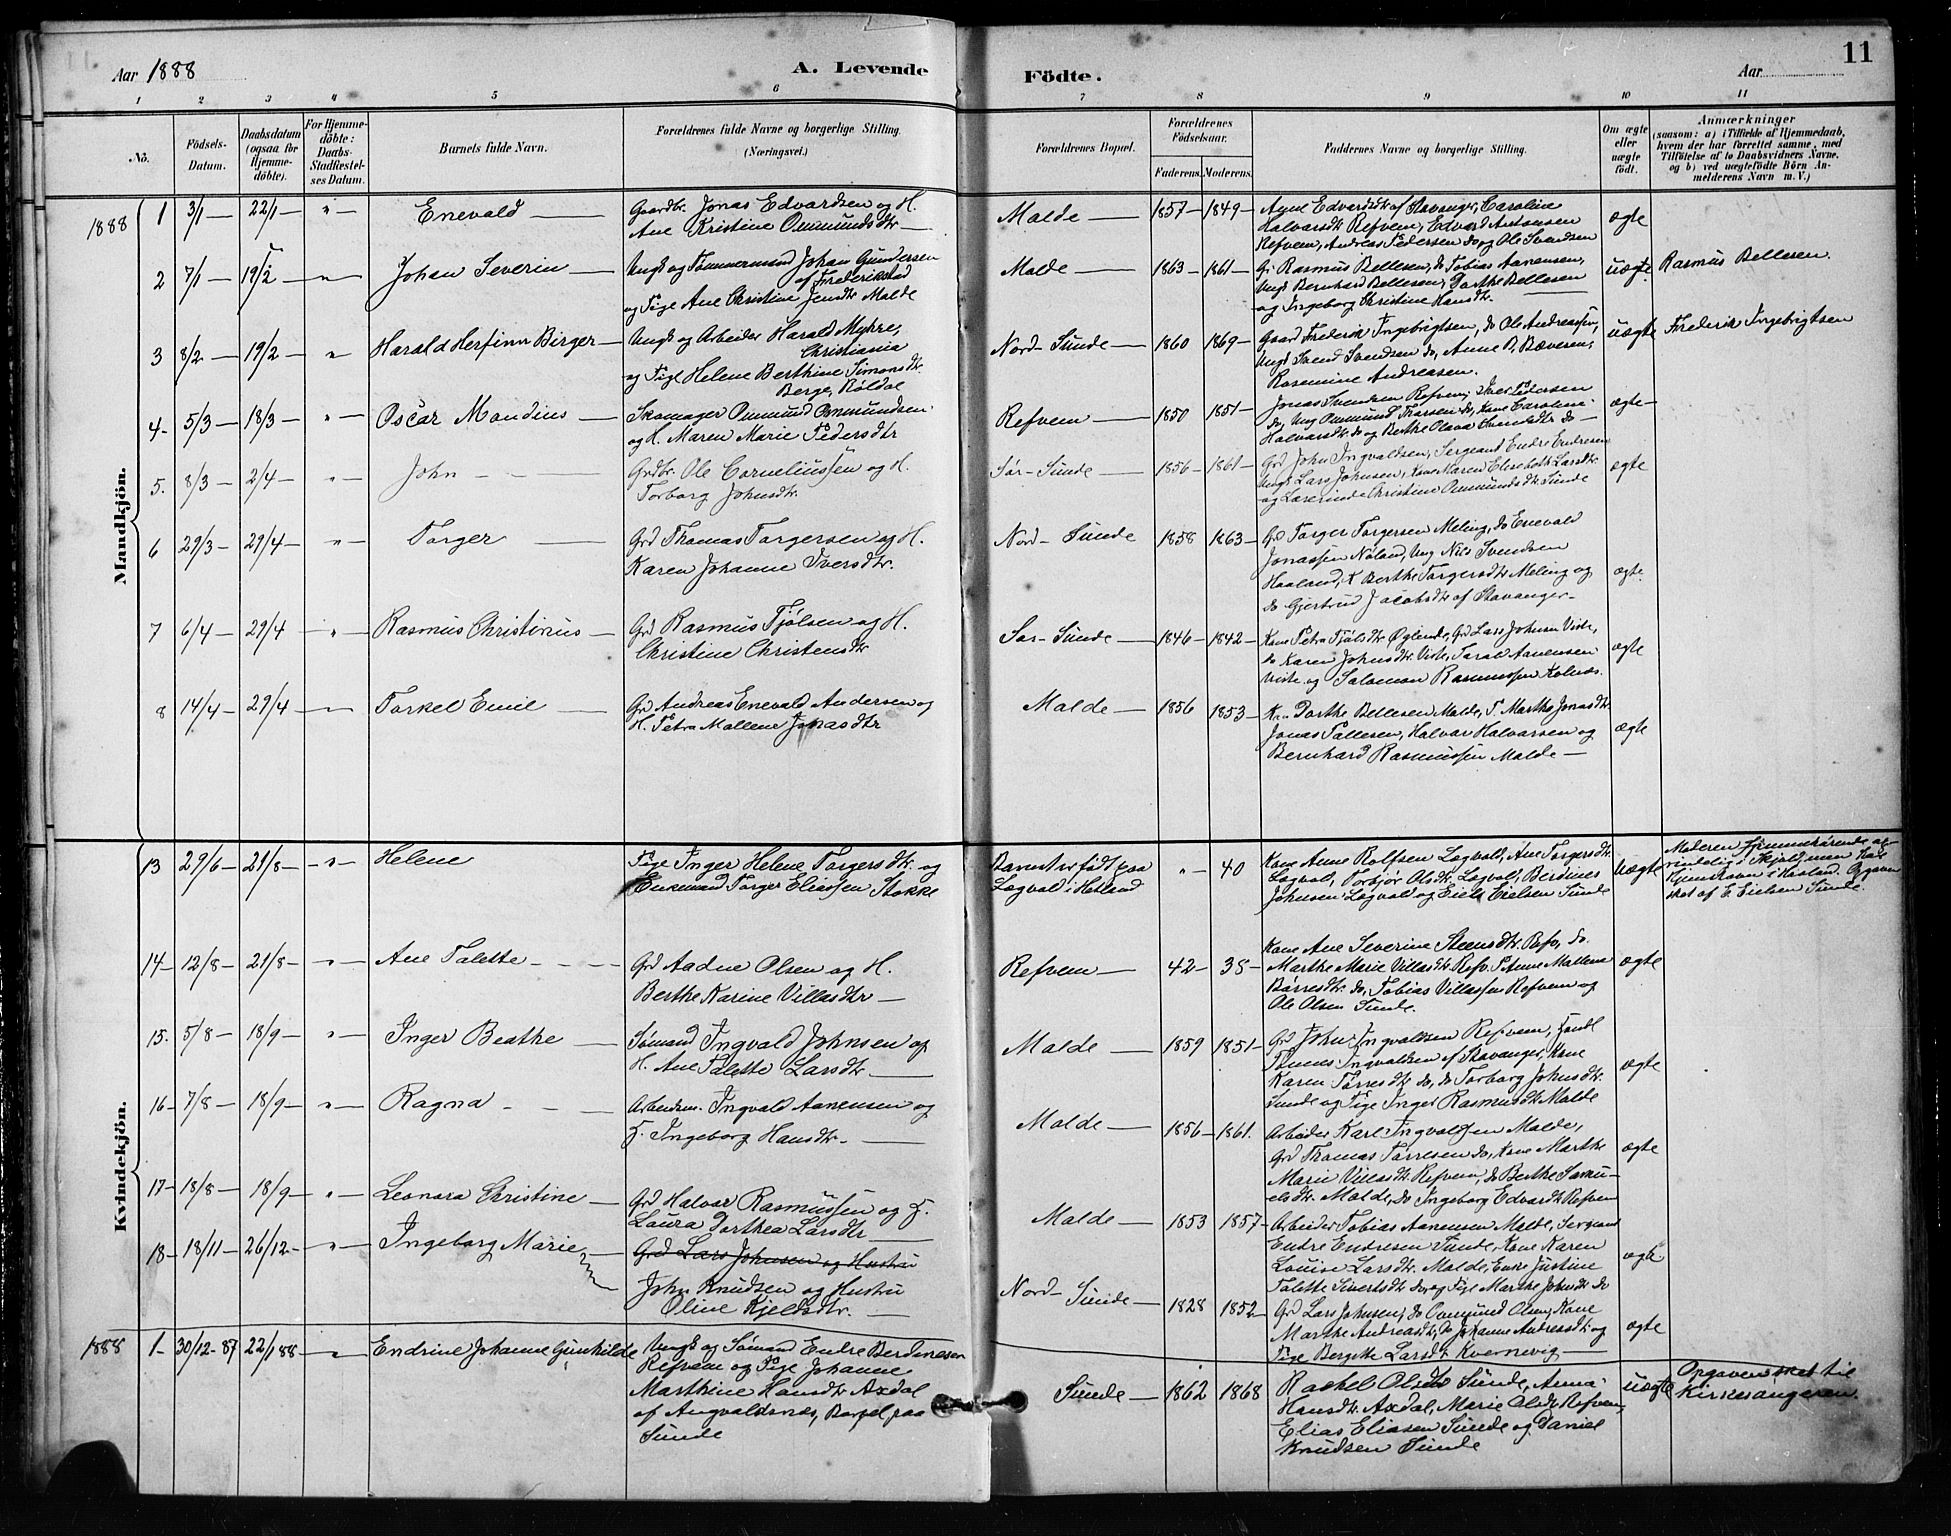 Aar 1888
A. Levende
Födte.
Aar
11
1
2
3
4
5
6
7
8
9
10
11
No.
Födsels-
Datum.
Daabsdatum
(ogsaa for
Hjemme-
döbte).
For Hjemme-
döbte:
Daabs-
Stadfæstel-
ses Datum.
Barnets fulde Navn.
Forældrenes fulde Navne og borgerlige Stilling.
(Næringsvei.)
Forældrenes Bopæl.
Forældrenes
Födselsaar.
Faderens.
Moderens.
Faddernes Navne og borgerlige Stilling.
Om ægte
eller
uægte
födt.
Anmærkninger
(saasom: a) i Tilfælde af Hjemmedaab,
hvem der har forrettet samme, med
Tilföielse af to Daabsvidners Navne,
og b) ved uægtefödte Börn An-
melderens Navn m. V.)
Mandkjön.
1888 1 3/1 — 22/1 — " — Enevald — Gaardbr. Jonas Edvardsen og H.
Ane Kristine Ommundsdtr —
Malde — 1857 — 1849 — Anne Edvardsdtr af Stavanger, Caroline
Halvarsdtr Refvem, Edvard
Refvem, Andreas Pedersen do og Ole Svendsen
ægte
2 7/1 — 19/2 — " — Johan Severin — Ungk og Tømmermand Johan Gundersen
af Frederikstad
og Pige Ane Christine Jensdtr Malde
Malde — 1863 — 1861 — G. Rasmus Bellesen, do Tobias Aanensen,
Ungk Bernhard Bellesen, Dorthe Bellesen
og Ingeborg Christine Hansdtr.
uægte Rasmus Bellesen.
3 8/2 — 19/2 — " — Harald Herfinn Birger — Ungk og Arbeider Harald Myhre,
Christiania
og Pige Helene Berthine Simonsdtr.
Berge, Røldal
Nord-Sunde — 1860 1869 — Gaard Frederik Ingebrigtsen, do Ole Andreassen,
Ungk Svend Svendsen do, Anne B. Bæversen,
Rasmine Andreasen.
uægte Frederik Ingebrigtsen
4 — 5/3 — 18/3 — " — Oscar Mandius — Skomager Ommund Ommundsen
og H. Maren Marie Pedersdtr
Refvem — 1850 1851 — Jonas Svendsen Refvem, Iver Pedersen
do, Ung Ommund Thorsen do, Kone Caroline
Halvarsdtr do og Berthe Olava Svendsdtr do —
ægte —
5. 8/3 — 2/4 — " — John — — Grdbr. Ole Corneliussen og H.
Torborg Johnsdtr.
Sør-Sunde — 1856 — 1861 — Grd John Ingvaldsen, Sergeant Endre Endresen
Ungk Lars Johnsen, Kone Karen Elisebeth Larsdtr
og Lærerinde Christine Ommundsdtr Sunde
ægte
6 29/3 — 29/4 — " — Torger — Grd Thomas Torgersen og H.
Karen Johanne Iversdtr.
Nord-Sunde 1858 1863 — G. Torger Torgersen Meling, do Enevald
Jonassen Noland, Ung Nils Svendsen
Haaland, K Berthe Torgersdtr Meling og
do Gjertrud Jacobsdtr af Stavanger —
ægte
7 6/4 — 29/4 — " — Rasmus Christinus — Grd Rasmus Tjølsen og H.
Christine Christensdtr
Sør-Sunde — 1846 — 1842 — Kone Petra Tjølsdtr Øglende, Grd Lars Johnsen Viste,
do Karen Johnsdtr. Viste, Tarald Aanensen
Viste og Salamon Rasmussen Kolnes.
ægte
8 14/4 — 29/4 — " — Torkel Emil — Grd Andreas Enevald Andersen og
H. Petra Mallene Jonasdtr
Malde — 1856 1853 — Kone Dorthe Bellesen Malde, P. Marthe Jonasdtr
Jonas Pallesen, Halvar Halvarsen og
Bernhard Rasmussen Malde —
ægte
Kvindekjön.
13 29/6 — 21/8 — " — Helene Pige Inger Helene Torgersdtr. og
Enkemand Torger Eliassen Stokke
Barnet er født paa
Lagvald i Hetland
" — 40 Kone Anne Rolfsen Lagvald, Ane Torgersdtr.
Lagvald, Torbjør Olsdtr. Lagvald, Berdines
Johnsen Lagvald og Eiel Eielsen Sunde
Uægte Moderen Hjemmehørende
i
Hjemstavn i Hetland. Opgaven
sket af E. Eielsen Sunde.
14 — 12/8 — 21/8 — " — Ane Talette — — — Grd Aadne Olsen og H.
Berthe Karine Villasdtr —
Refvem — 42 — 35 — Kone Ane Severine Steensdtr. Refv, do.
Marthe Marie Villasdtr Refv. P Anne Mallene
Børresdtr. do, Tobias Villassen Refvem og
Ole Olsen Sunde.
ægte
15. 5/8 — 18/9 — " — Inger Beathe — Sømand Ingvald Johnsen og
H. Ane Talette Larsdtr —
Malde — 1859 1851 — Grd John Ingvaldsen Refvem,
Tønnes Ingvaldsen af Stavanger, Kone
Karen Tørresdtr do, do Torborg Johnsdtr.
Sunde og Pige Inger Rasmusdtr Malde
ægte
16 — 7/8 — 18/9 — " — Ragna — — Arbeidsm. Ingvald Aanensen og
H. Ingeborg Hansdtr. —
Malde — 1856 — 1861. Arbeider Karl Ingvaldsen Malde,
Grd Thomas Tørresen do, Kone Marthe
Marie Villasdtr Refvem, do Berthe Samu-
elsdtr. Malde, do Ingeborg Edvardsdtr Refvem
ægte
17 — 18/8 — 18/9 — " — Leonora Christine — Grd Halvor Rasmussen og H.
Laura Dorthea Larsdtr —
Malde — 1853 1857 — Arbeider Tobias Aanensen Malde, Sergeant
Endre Endresen Sunde, Kone Karen
Louise Larsdtr. Malde, Enke Justine
Talette Sivertsdtr do og Pige Marthe Johnsdtr do
ægte
18 — 18/11 — 26/12 — " — Ingeborg Marie — Grd Lars Johnsen og Hustru
John Knudsen og Hustru
Oline Kjeldsdtr. —
Nord-Sunde — 1828 1852 — Grd Lars Johnsen, do Ommund Olsen, Kone
Marthe Andreasdtr, do Johanne Andreasdtr og
Pige Bergitte Larsdtr Kvernevig —
ægte
1888 1 — 30/12-87 22/1 88 — " — Endrine Johanne Gunhilde Ungk og Sømand Endre Berdinesen
Refvem og Pige Johanne
Marthine Hansdtr Axdal
af Augvaldsnes, Bopæl paa
Sunde
Sunde — 1862 1868 Rachel Olsdtr Sunde, Anna
Hansdtr. Axdal, Marie Olsdtr Refvem,
Elias Eliasen Sunde og Daniel
Knudsen Sunde
uægte Opgaven sket til
Kirkesangeren.